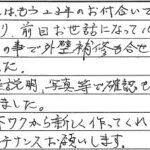 はもう23年のお付合いで
り、前回お世話になって
の事で外壁補修も合せ
した。
説明、写真等で確認も
ました。
ワクから新しく作ってくれ
チナンスお願いします。